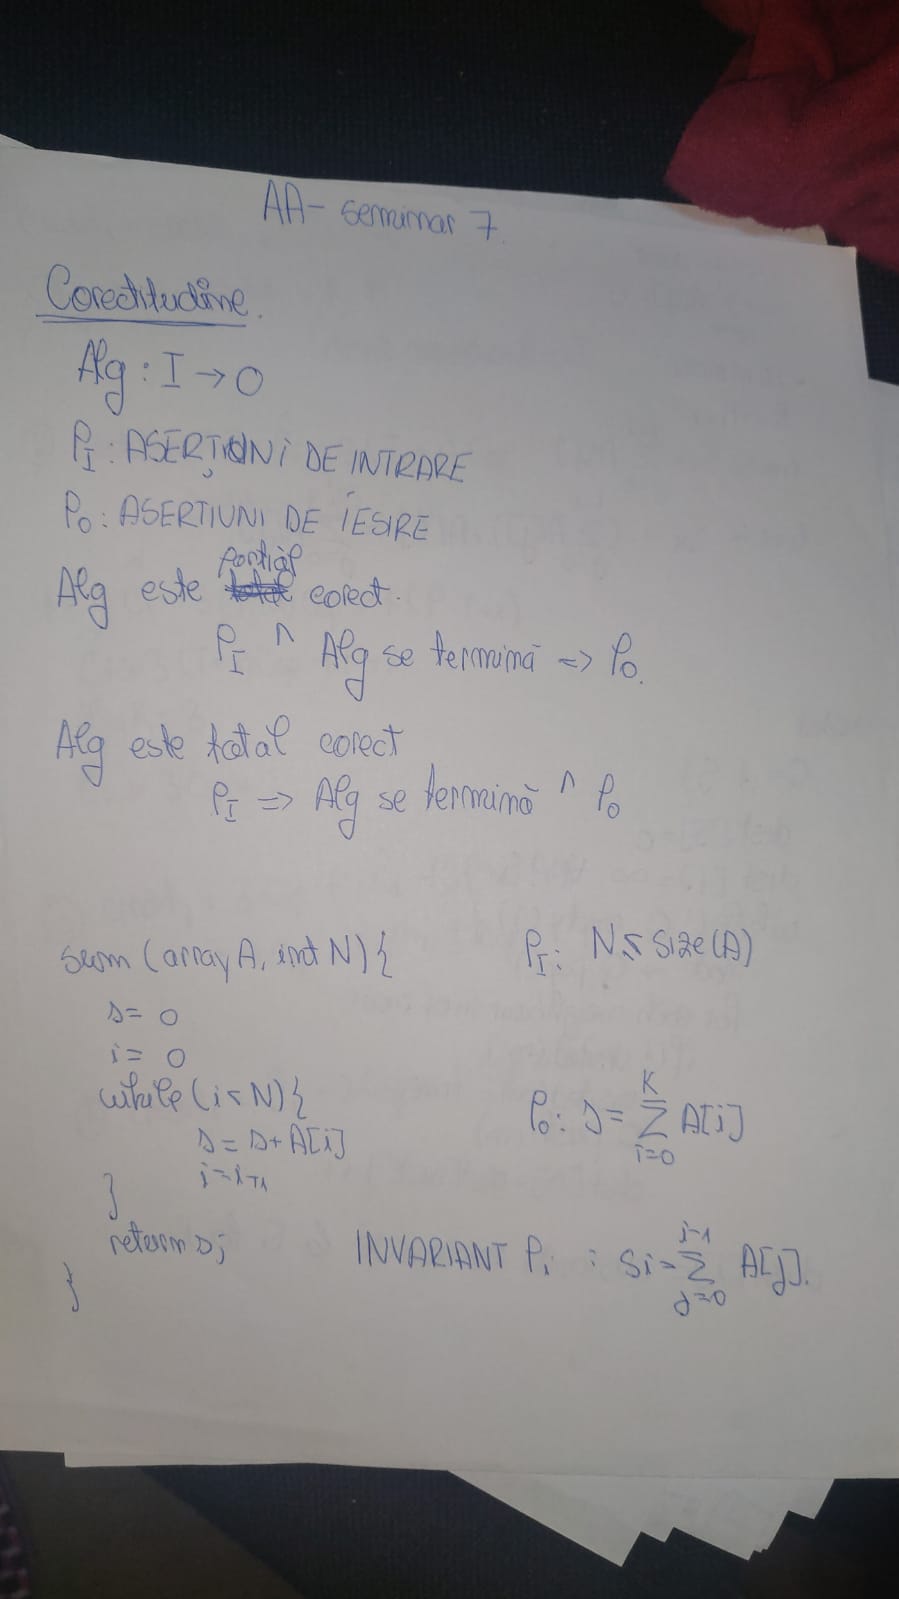 AA- seminar 7.
Corectitudine.
Alg : I → O
P_I : ASERȚIUNI DE INTRARE
P_O : ASERTIUNI DE IESIRE
Alg este parțial corect.
P_I ^ Alg se termină => P_O.
Alg este total corect
P_I => Alg se termină ^ P_O
sum (array A, int N) { P_I: N ≤ size(A)
s = 0
i = 0
while (i < N) { P_O: s = Σ_{i=0}^{K} A[i]
s = s + A[i]
i = i+1
}
return s; INVARIANT P_i : S_i = Σ_{j=0}^{i-1} A[j].
}